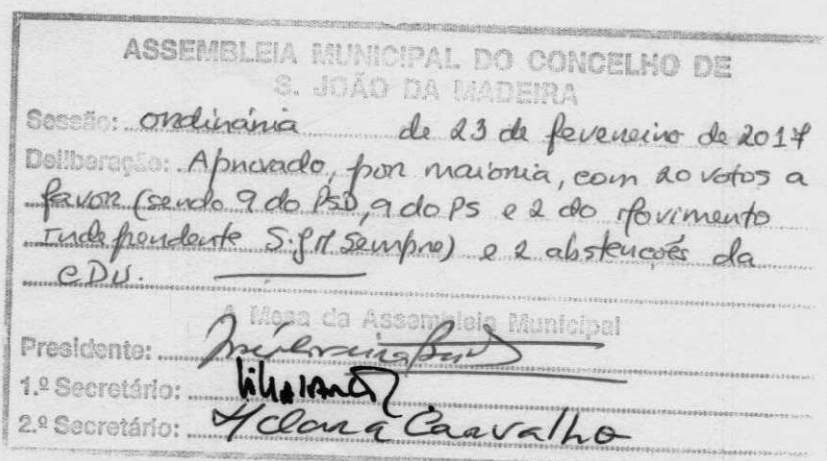 ASSEMBLEIA MUNICIPAL DO CONCELHO DE
S. JOÃO DA MADEIRA
Sessão: ordinária de 23 de fevereiro de 2017
Deliberação: Aprovado, por maioria, com 20 votos a
favor (sendo 9 do PSD, 9 do PS e 2 do Movimento
Independente SJM Sempre) e 2 abstenções da
CDU.
A Mesa da Assembleia Municipal
Presidente:
1.º Secretário:
2.º Secretário: Clara Carvalho